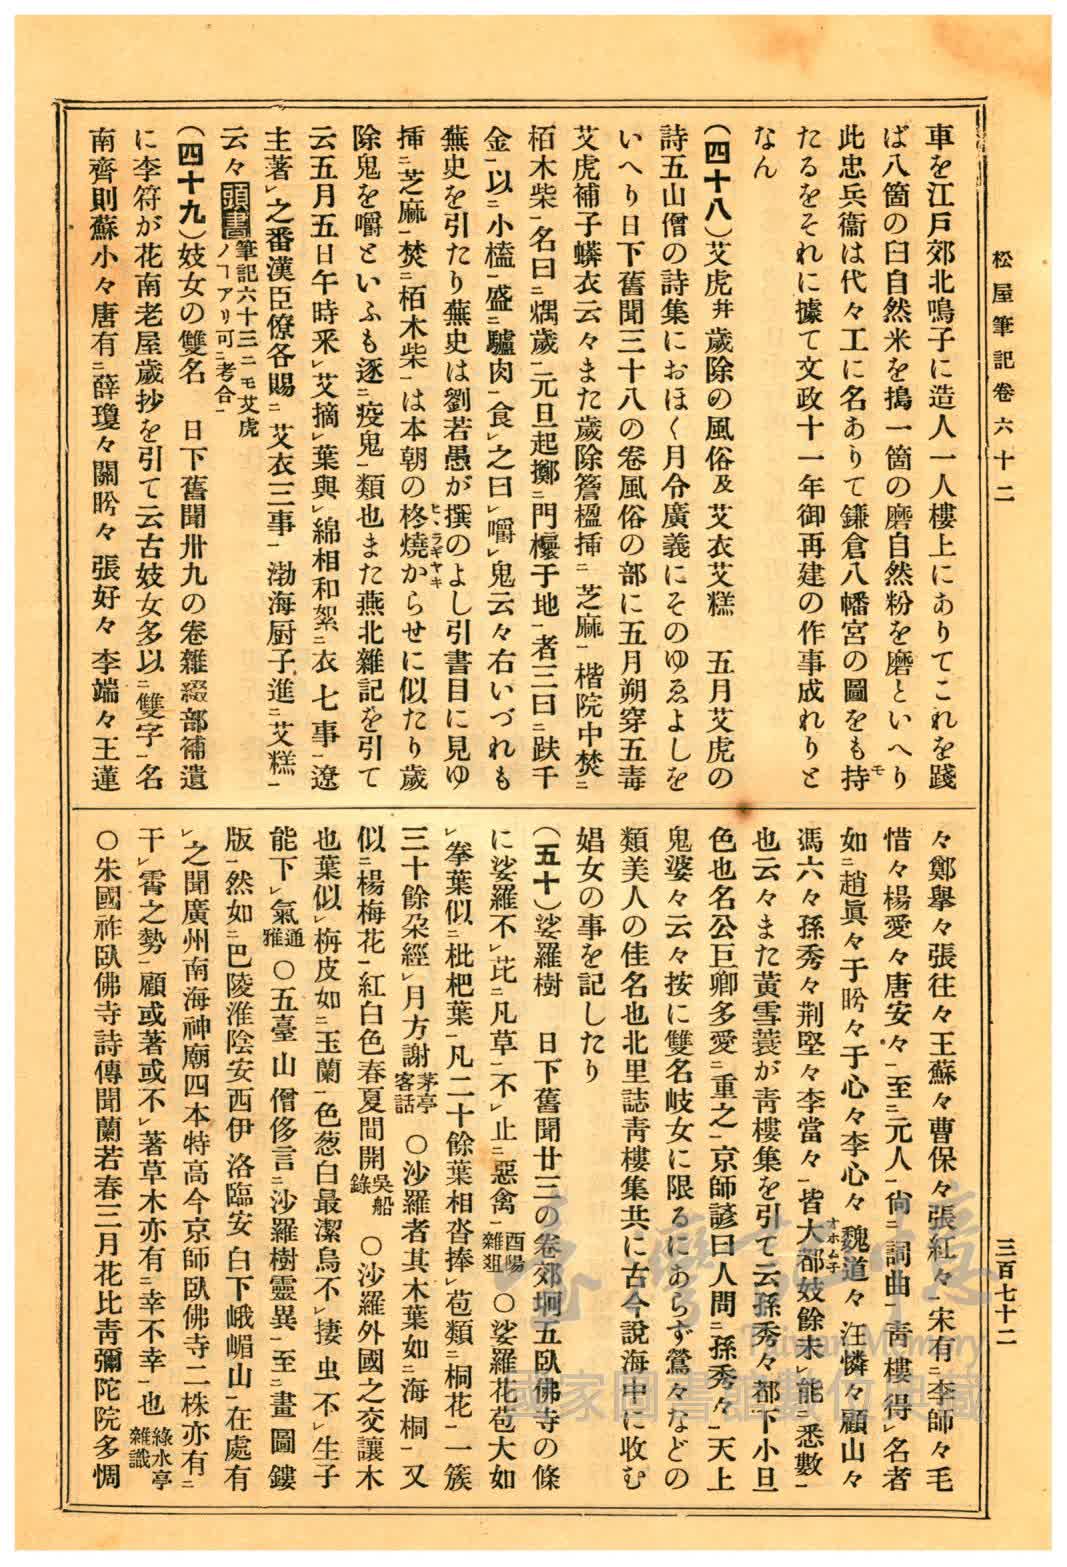 松屋筆記卷六十二
三百七十二
車を江戸郊北鳴子に造人一人樓上にありてこれを踐
ば八箇の臼自然米を搗一箇の磨自然粉を磨といへり
此忠兵衞は代々工に名ありて鎌倉八幡宮の圖をも持モ
たるをそれに據て文政十一年御再建の作事成れりと
なん
(四十八)艾虎幷歲除の風俗及艾衣艾糕　五月艾虎の
詩五山僧の詩集におほく月令廣義にそのゆゑよしを
いへり日下舊聞三十八の卷風俗の部に五月朔穿五毒
艾虎補子蟒衣云々また歲除簷楹揷ニ芝麻一楷院中焚ニ
栢木柴一名曰ニ煨歲一元旦起擲ニ門欀于地一者三曰ニ跌千
金一以ニ小榼一盛ニ驢肉一食レ之曰レ嚼レ鬼云々右いづれも
蕪史を引たり蕪史は劉若愚が撰のよし引書目に見ゆ
揷ニ芝麻一焚ニ栢木柴一は本朝の柊燒ヒヽラギヤキからせに似たり歲
除鬼を嚼といふも逐ニ疫鬼一類也また燕北雜記を引て
云五月五日午時釆レ艾摘レ葉與レ綿相和絮ニ衣七事一遼
主著レ之番漢臣僚各賜ニ艾衣三事一渤海厨子進ニ艾糕一
云々頭書筆記六十三ニモ艾虎ノヿアリ可ニ考合一
(四十九)妓女の雙名　日下舊聞卅九の卷雜綴部補遺
に李符が花南老屋歲抄を引て云古妓女多以ニ雙字一名
南齊則蘇小々唐有ニ薛瓊々關盻々張好々李端々王蓮
々鄭擧々張往々王蘇々曹保々張紅々宋有ニ李師々毛
惜々楊愛々唐安々一至ニ元人一尙ニ詞曲一靑樓得レ名者
如ニ趙眞々于盻々于心々李心々魏道々汪憐々顧山々
馮六々孫秀々荆堅々李當々一皆大都オホムチ妓餘未レ能ニ悉數一
也云々また黃雪蓑が靑樓集を引て云孫秀々都下小旦
色也名公巨卿多愛ニ重之一京師諺曰人間ニ孫秀々一天上
鬼婆々云々按に雙名岐女に限るにあらず鶯々などの
類美人の佳名也北里誌靑樓集共に古今說海中に收む
娼女の事を記したり
(五十)娑羅樹　日下舊聞廿三の卷郊坰五臥佛寺の條
に娑羅不レ芘ニ凡草一不レ止ニ惡禽一酉陽雜爼　○娑羅花苞大如
レ拳葉似ニ枇杷葉一凡二十餘葉相沓捧レ苞類ニ桐花一一簇
三十餘朶經レ月方謝茅亭客話　○沙羅者其木葉如ニ海桐一又
似ニ楊梅花一紅白色春夏間開吳船錄　○沙羅外國之交讓木
也葉似レ栴皮如ニ玉蘭一色葱白最潔烏不レ捿虫不レ生子
能下レ氣通雅　○五臺山僧侈言ニ沙羅樹靈異一至ニ畫圖鏤
版一然如ニ巴陵淮陰安西伊洛臨安白下峨嵋山一在處有
レ之聞廣州南海神廟四本特高今京師臥佛寺二株亦有ニ
干レ霄之勢一顧或著或不レ著草木亦有ニ幸不幸一也綠水亭雜識
○朱國祚臥佛寺詩傳聞蘭若春三月花比靑彌陀院多惆
臺灣記憶
Taiwan Memory
國家圖書館數位典藏